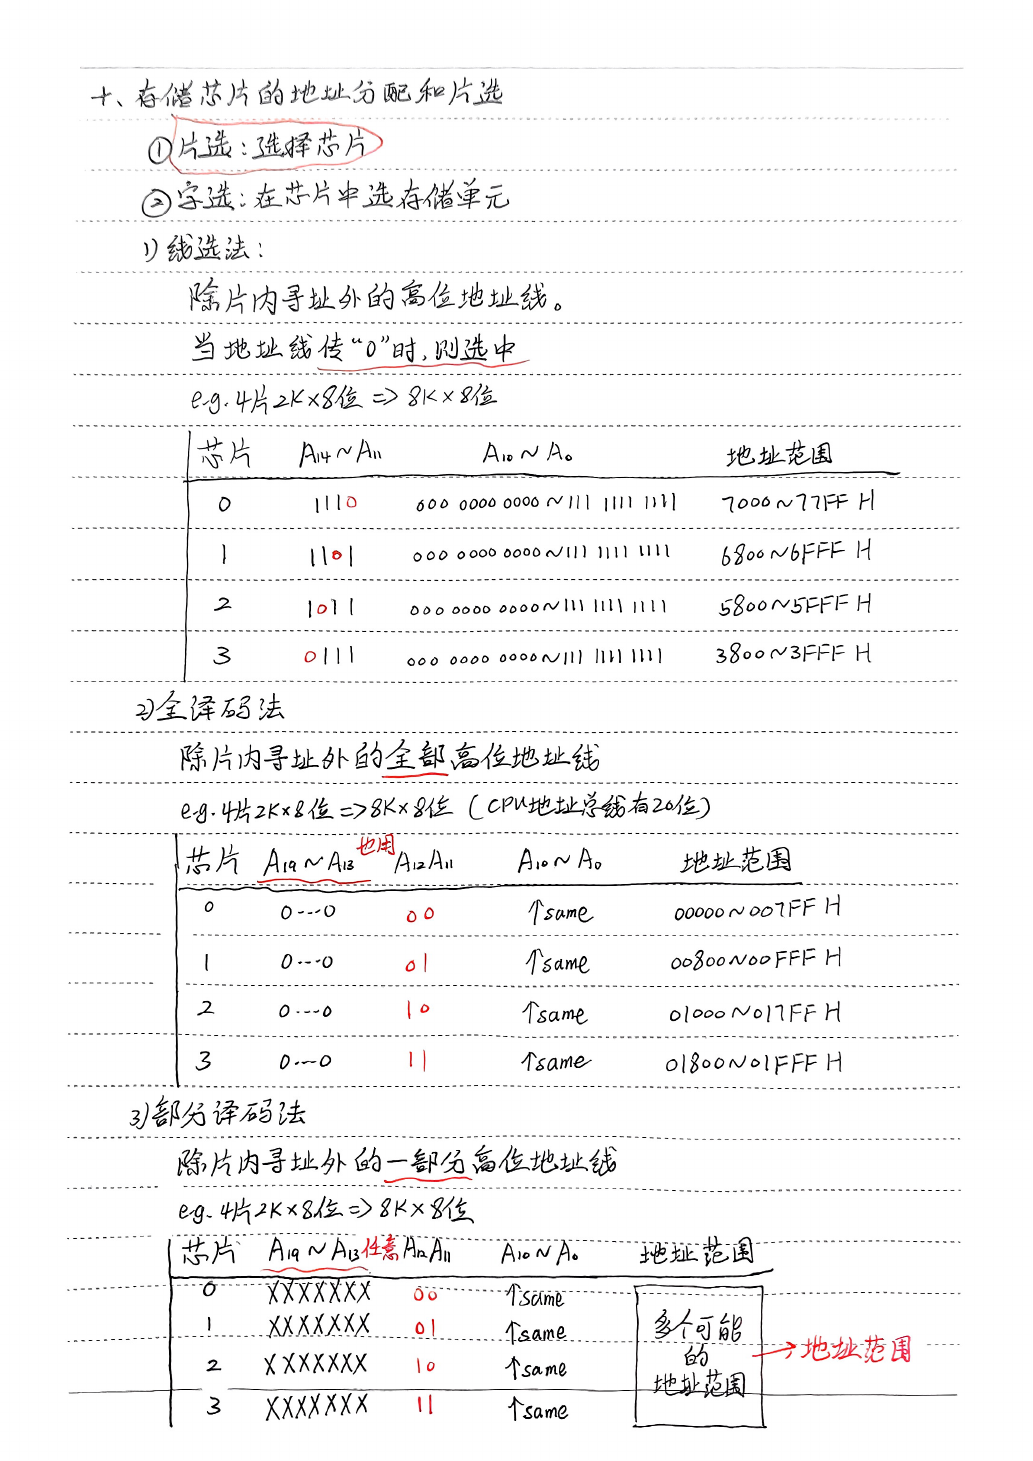 十、存储芯片的地址分配和片选
①片选：选择芯片
②字选：在芯片中选存储单元
1)线选法：
除片内寻址外的高位地址线。
当地址线传“0”时,则选中
e.g. 4片2K×8位 => 8K×8位
芯片 A14~A11 A10~A0 地址范围
0 1110 000 0000 0000~111 1111 1111 7000~77FF H
1 1101 000 0000 0000~111 1111 1111 6800~6FFF H
2 1011 000 0000 0000~111 1111 1111 5800~5FFF H
3 0111 000 0000 0000~111 1111 1111 3800~3FFF H
2)全译码法
除片内寻址外的全部高位地址线
e.g. 4片2K×8位=>8K×8位 (CPU地址总线有20位)
芯片 A19~A13 也用 A12A11 A10~A0 地址范围
0 0---0 00 ↑same 00000~007FF H
1 0---0 01 ↑same 00800~00FFF H
2 0---0 10 ↑same 01000~017FF H
3 0---0 11 ↑same 01800~01FFF H
3)部分译码法
除片内寻址外的一部分高位地址线
e.g. 4片2K×8位=>8K×8位
芯片 A19~A13 任意 A12A11 A10~A0 地址范围
0 XXXXXXX 00 ↑same
1 XXXXXXX 01 ↑same 多个可能
2 XXXXXXX 10 ↑same 的 →地址范围
3 XXXXXXX 11 ↑same 地址范围